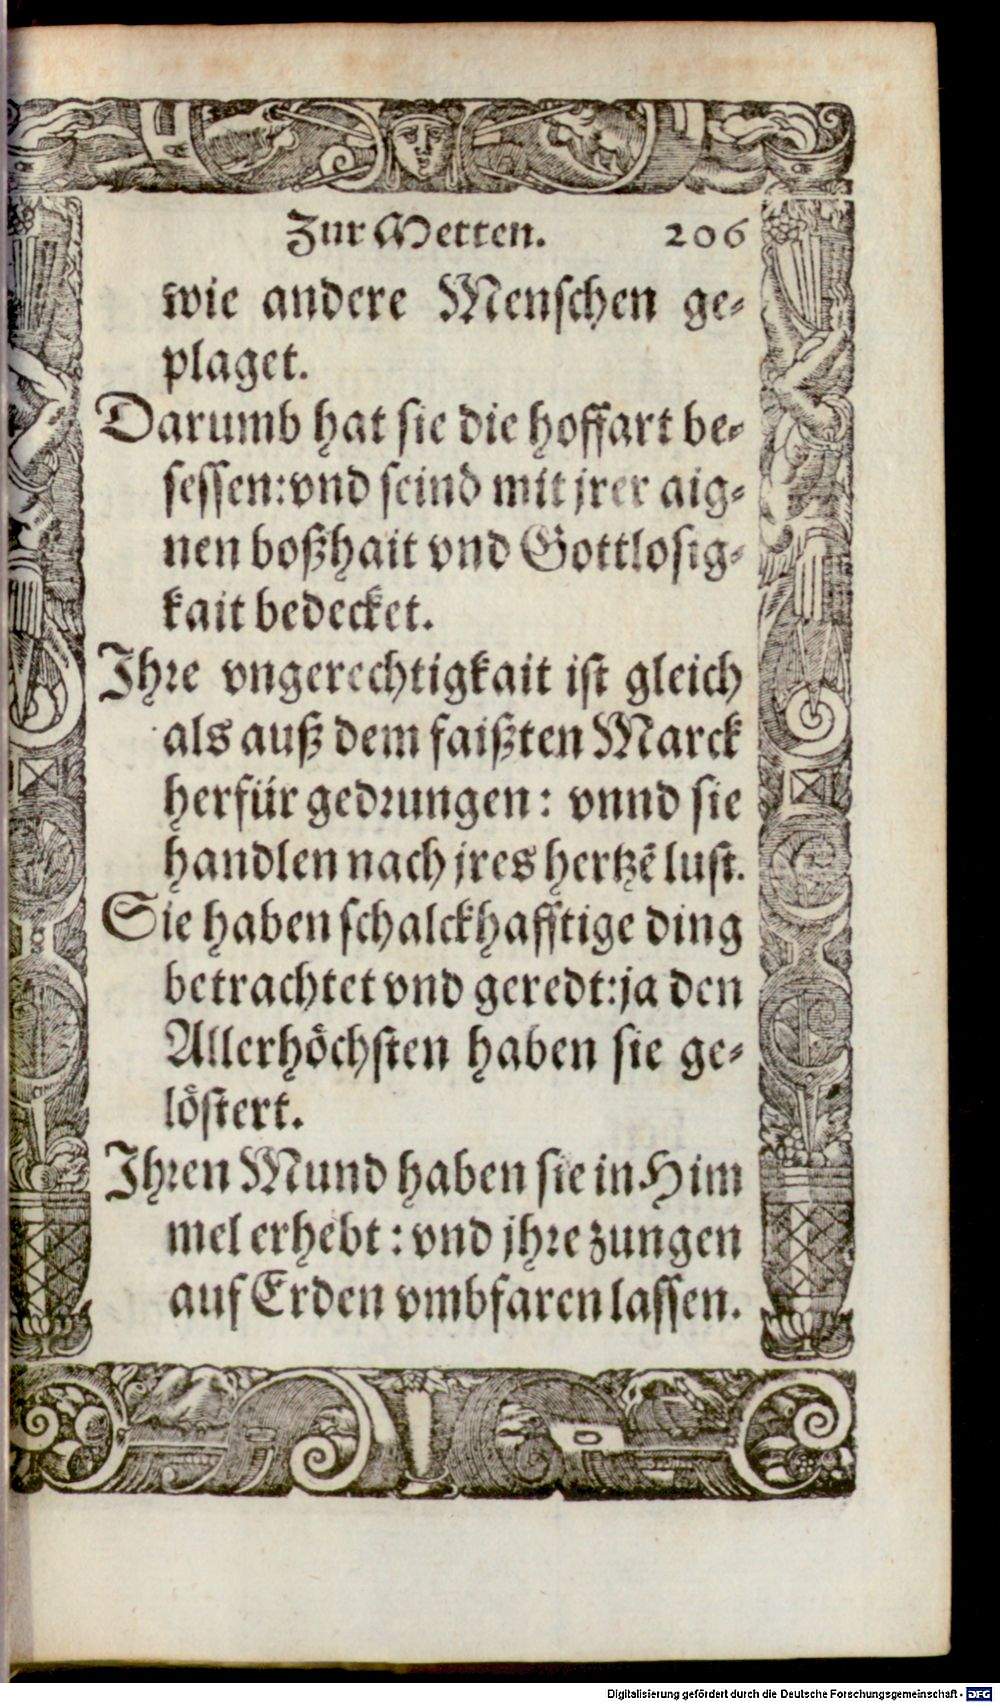 Zur Metten. 206
wie andere Menschen ge⸗
plaget.
Darumb hat sie die hoffart be⸗
sessen: vnd seind mit jrer aig⸗
nen boßhait vnd Gottlosig⸗
kait bedecket.
Ihre vngerechtigkait ist gleich
als auß dem faißten Marck
herfür gedrungen: vnnd sie
handlen nach jres hertzẽ lust.
Sie haben schalckhafftige ding
betrachtet vnd geredt: ja den
Allerhöchsten haben sie ge⸗
löstert.
Ihren Mund haben sie in Him
mel erhebt: vnd jhre zungen
auf Erden vmbfaren lassen.
Digitalisierung gefördert durch die Deutsche Forschungsgemeinschaft - DFG